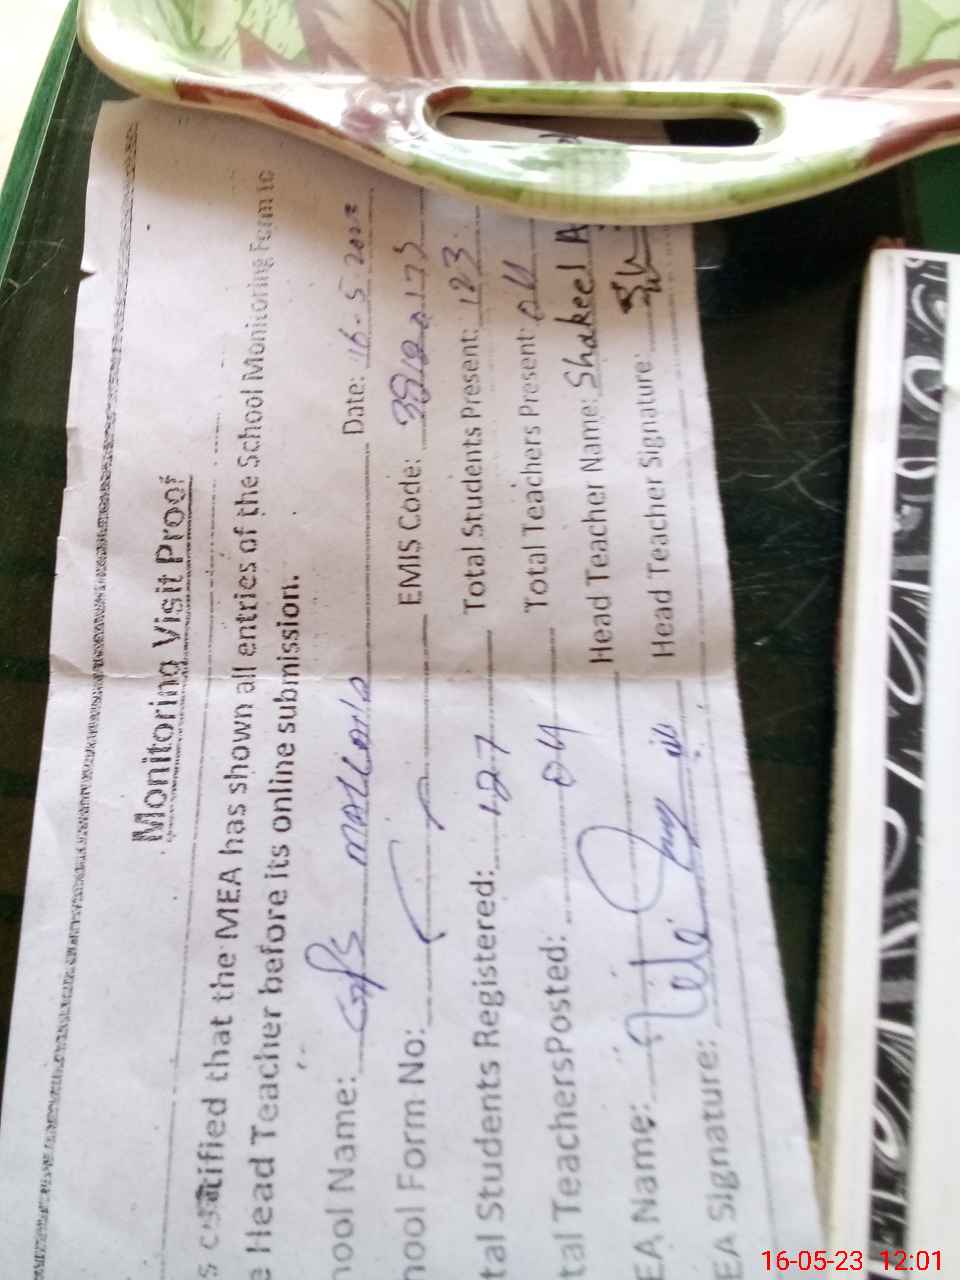 Monitoring Visit Proof
s certified that the MEA has shown all entries of the School Monitoring Form to
e Head Teacher before its online submission.
hool Name: GPS Date: 16-5-202
hool Form No: EMIS Code:
tal Students Registered: 127 Total Students Present: 123
tal TeachersPosted: 04 Total Teachers Present: 04
EA Name: Head Teacher Name: Shakeel A
EA Signature: Head Teacher Signature:
16-05-23 12:01